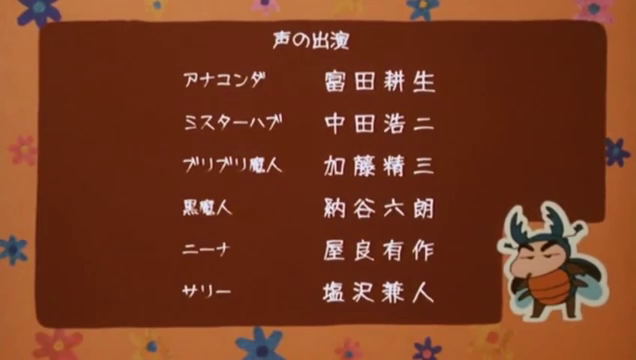 声の出演
アナコンダ 富田耕生
ミスターハブ 中田浩二
ブリブリ魔人 加藤精三
黒魔人 納谷六朗
ニーナ 屋良有作
サリー 塩沢兼人